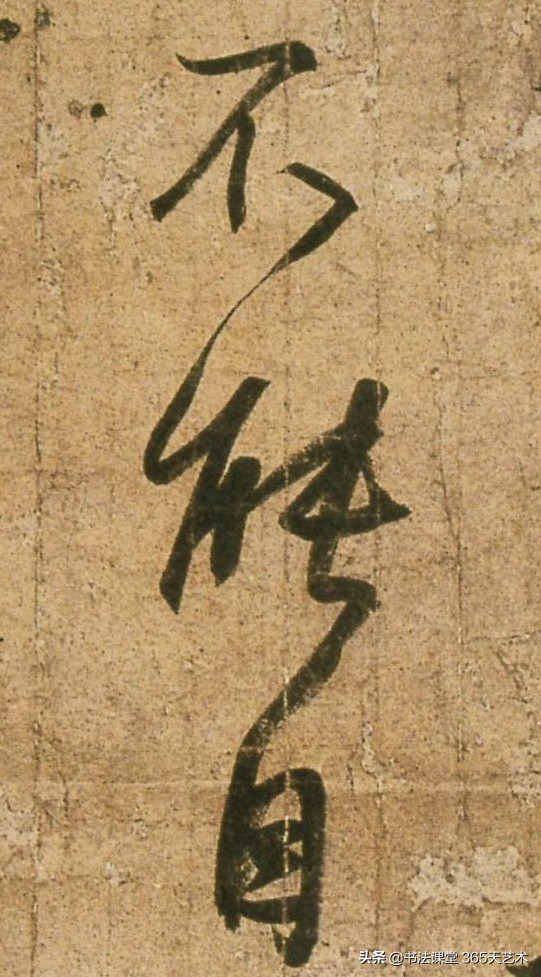 不能自
头条 @书法课堂 365天艺术